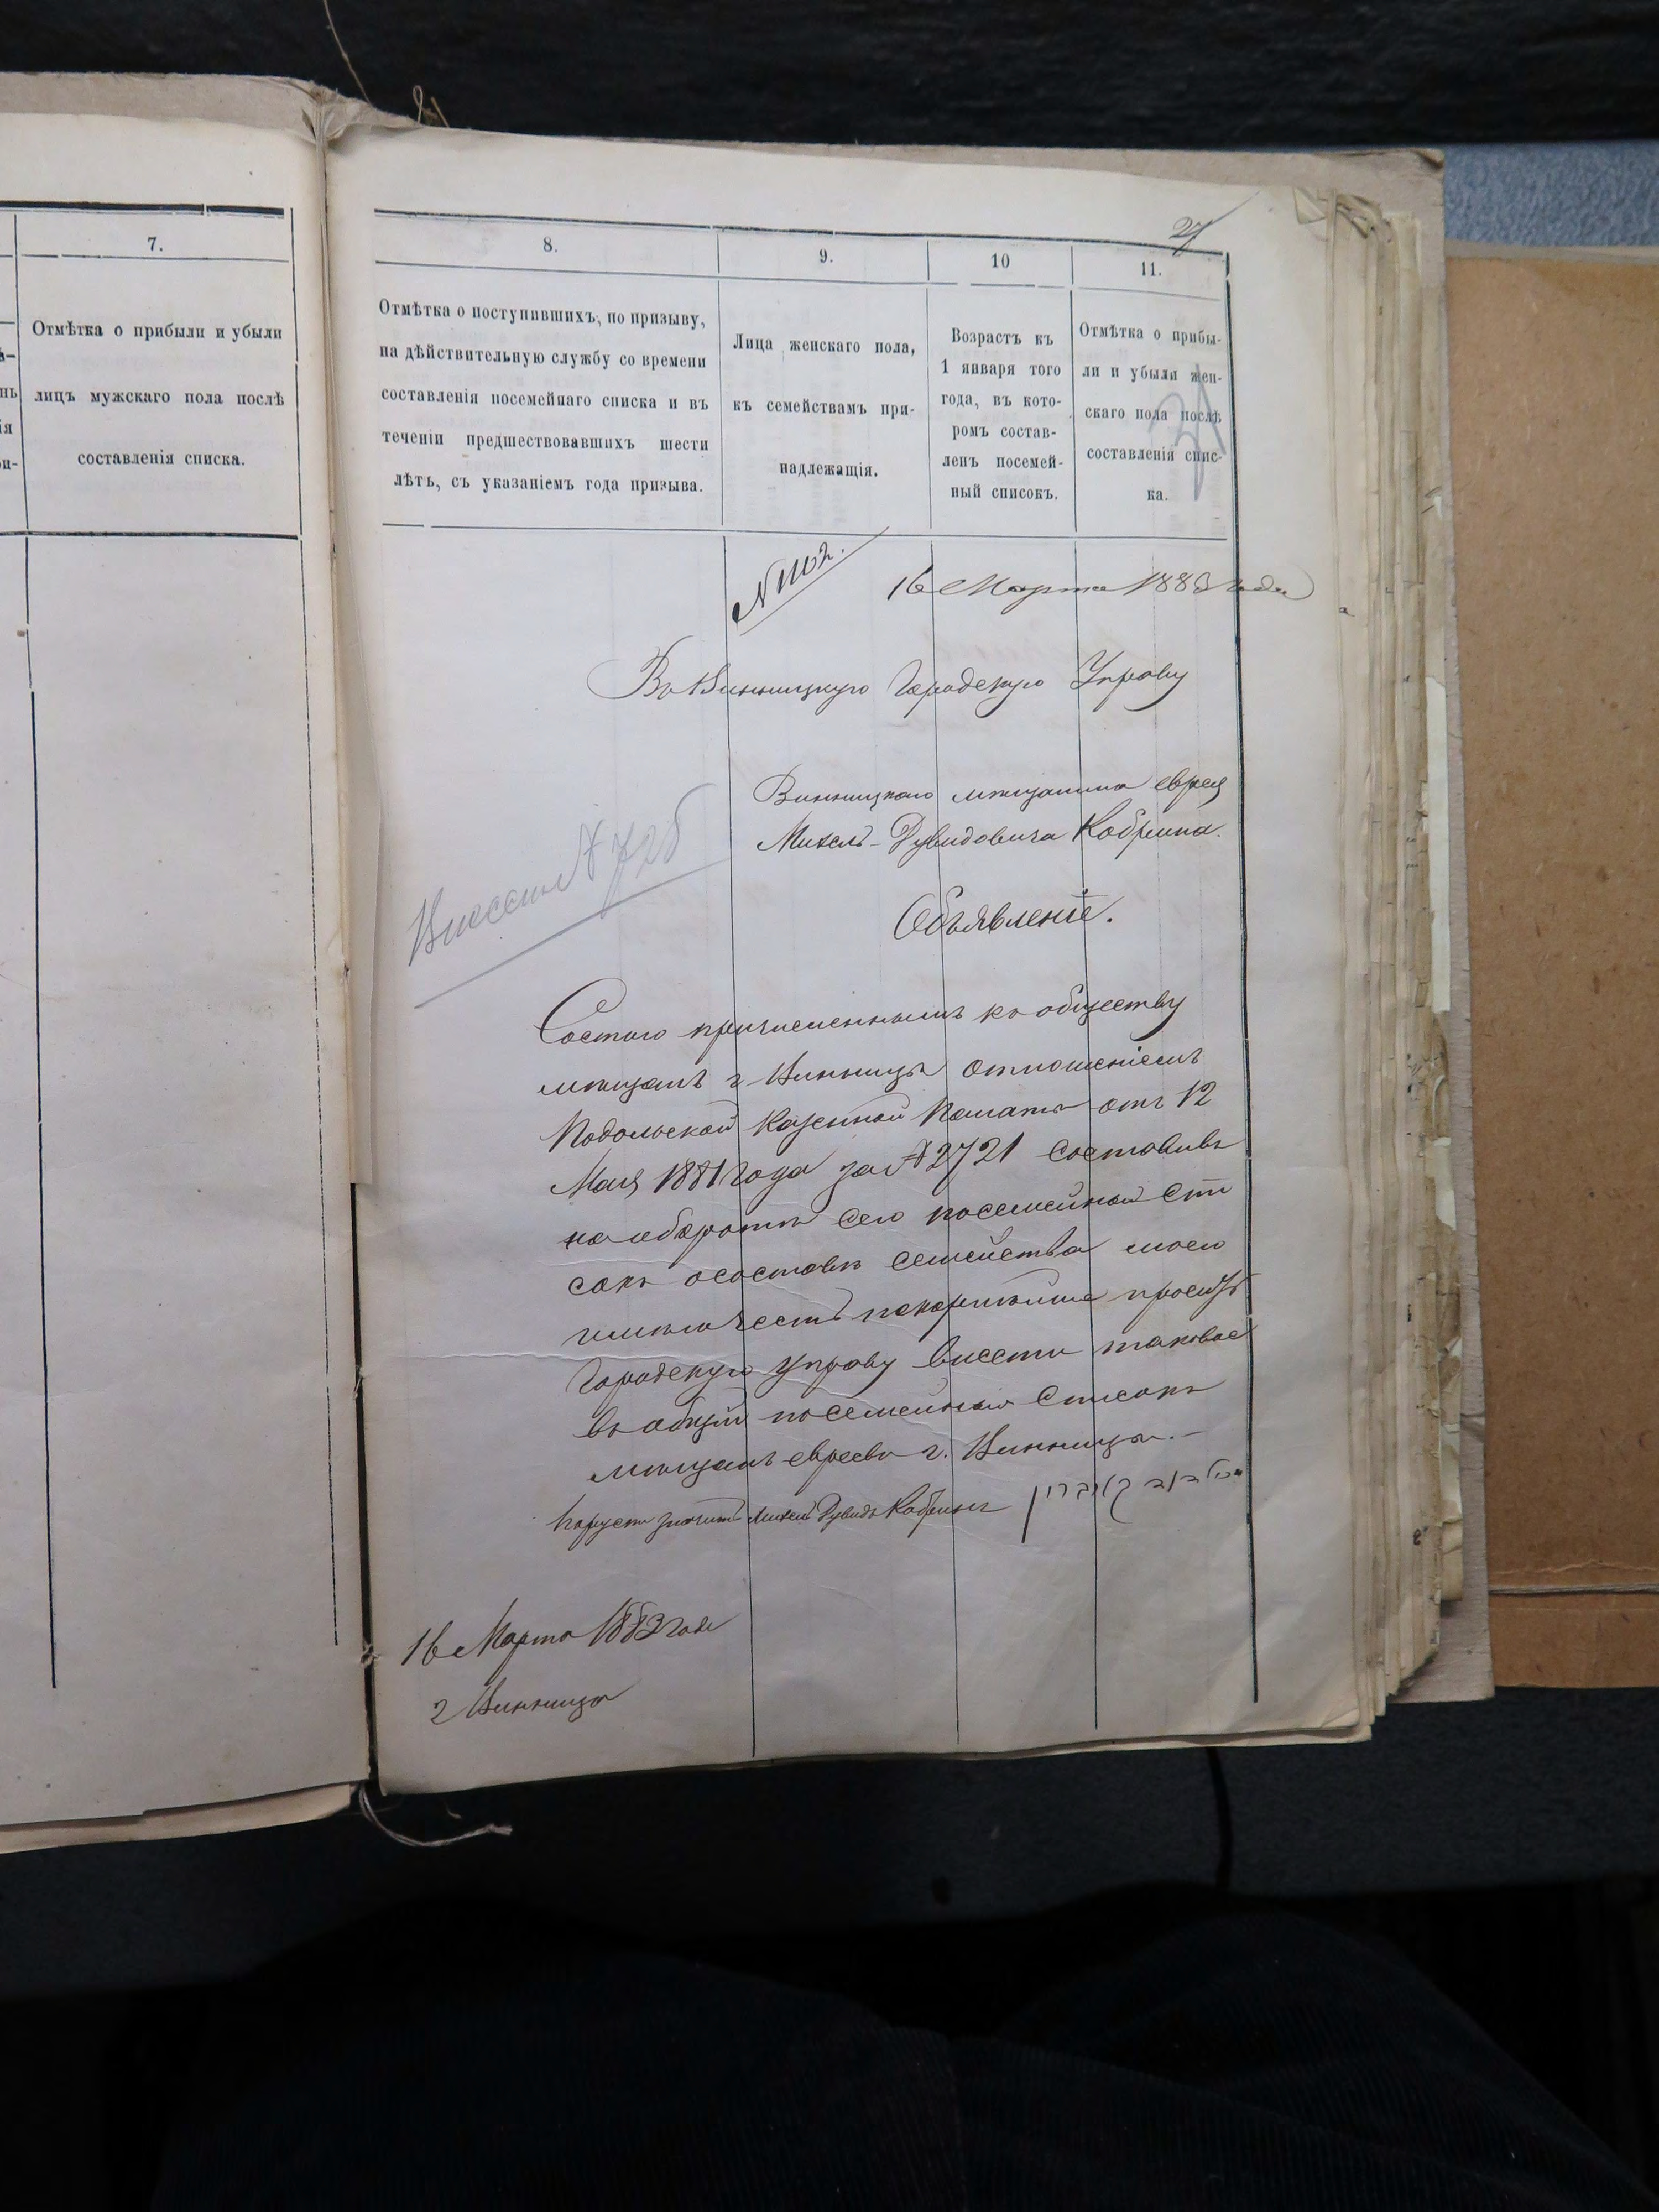 7.
Отмѣтка о прибыли и убыли
лицъ мужскаго пола послѣ
составленія списка.
27
8.
9.
10
11.
Отмѣтка о поступившихъ, по призыву,
на дѣйствительную службу со времени
составленія посемейнаго списка и въ
теченіи предшествовавшихъ шести
лѣтъ, съ указаніемъ года призыва.
Лица женскаго пола,
къ семействамъ при-
надлежащія.
Возрастъ къ
1 января того
года, въ кото-
ромъ состав-
ленъ посемей-
ный списокъ.
Отмѣтка о прибы-
ли и убыли жен-
скаго пола послѣ
составленія спис-
ка.
16 Марта 1883 года
Въ Винницкую Городскую Управу
Винницкаго мѣщанина еврея
Михель-Дувидовича Кобрина.
Объявленіе.
Внесено № 726
Состою причисленнымъ къ обществу
мѣщанъ г Винницы отношеніемъ
Подольской Казенной Палаты отъ 12
Мая 1881 года за № 2721 составивъ
на оборотѣ сего посемейный спи
сокъ о составѣ семейства моего
имѣю честь покорнѣйше просить
Городскую Управу внести таковое
въ общій посемейный списокъ
мѣщанъ евреевъ г. Винницы.–
Михель Дувидъ Кобринъ
קאברין
16 Марта 1883 года
г Винница